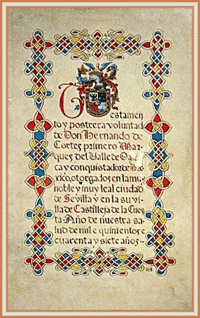 Testamen
to y postrera voluntad
de Don Hernando de
Cortes primero Mar
ques del Valle de Oa
xaca y conquistador de
Mexico otorgados en la muy
noble y muy leal ciudad
de Sevilla y en la su vi
lla de Castilleja de la Cue
sta. Año de nuestra sa
lud de mil e quinientos e
cuarenta y siete años